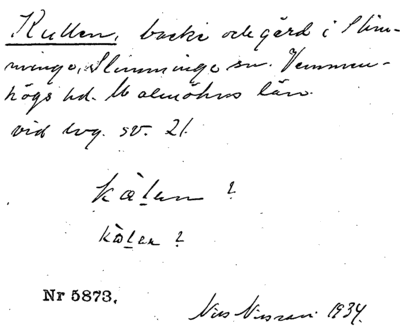 Kullen, backe och gård i Slim-
minge, Slimminge sn. Vemmen-
högs hd. Malmöhus län.
vid lvg. sv. 21.
kălen ?
kălen ?
Nr 5873.
Nils Nilsson 1934.